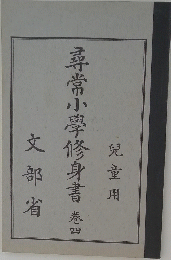 兒童用
尋常小學修身書 巻四
文部省